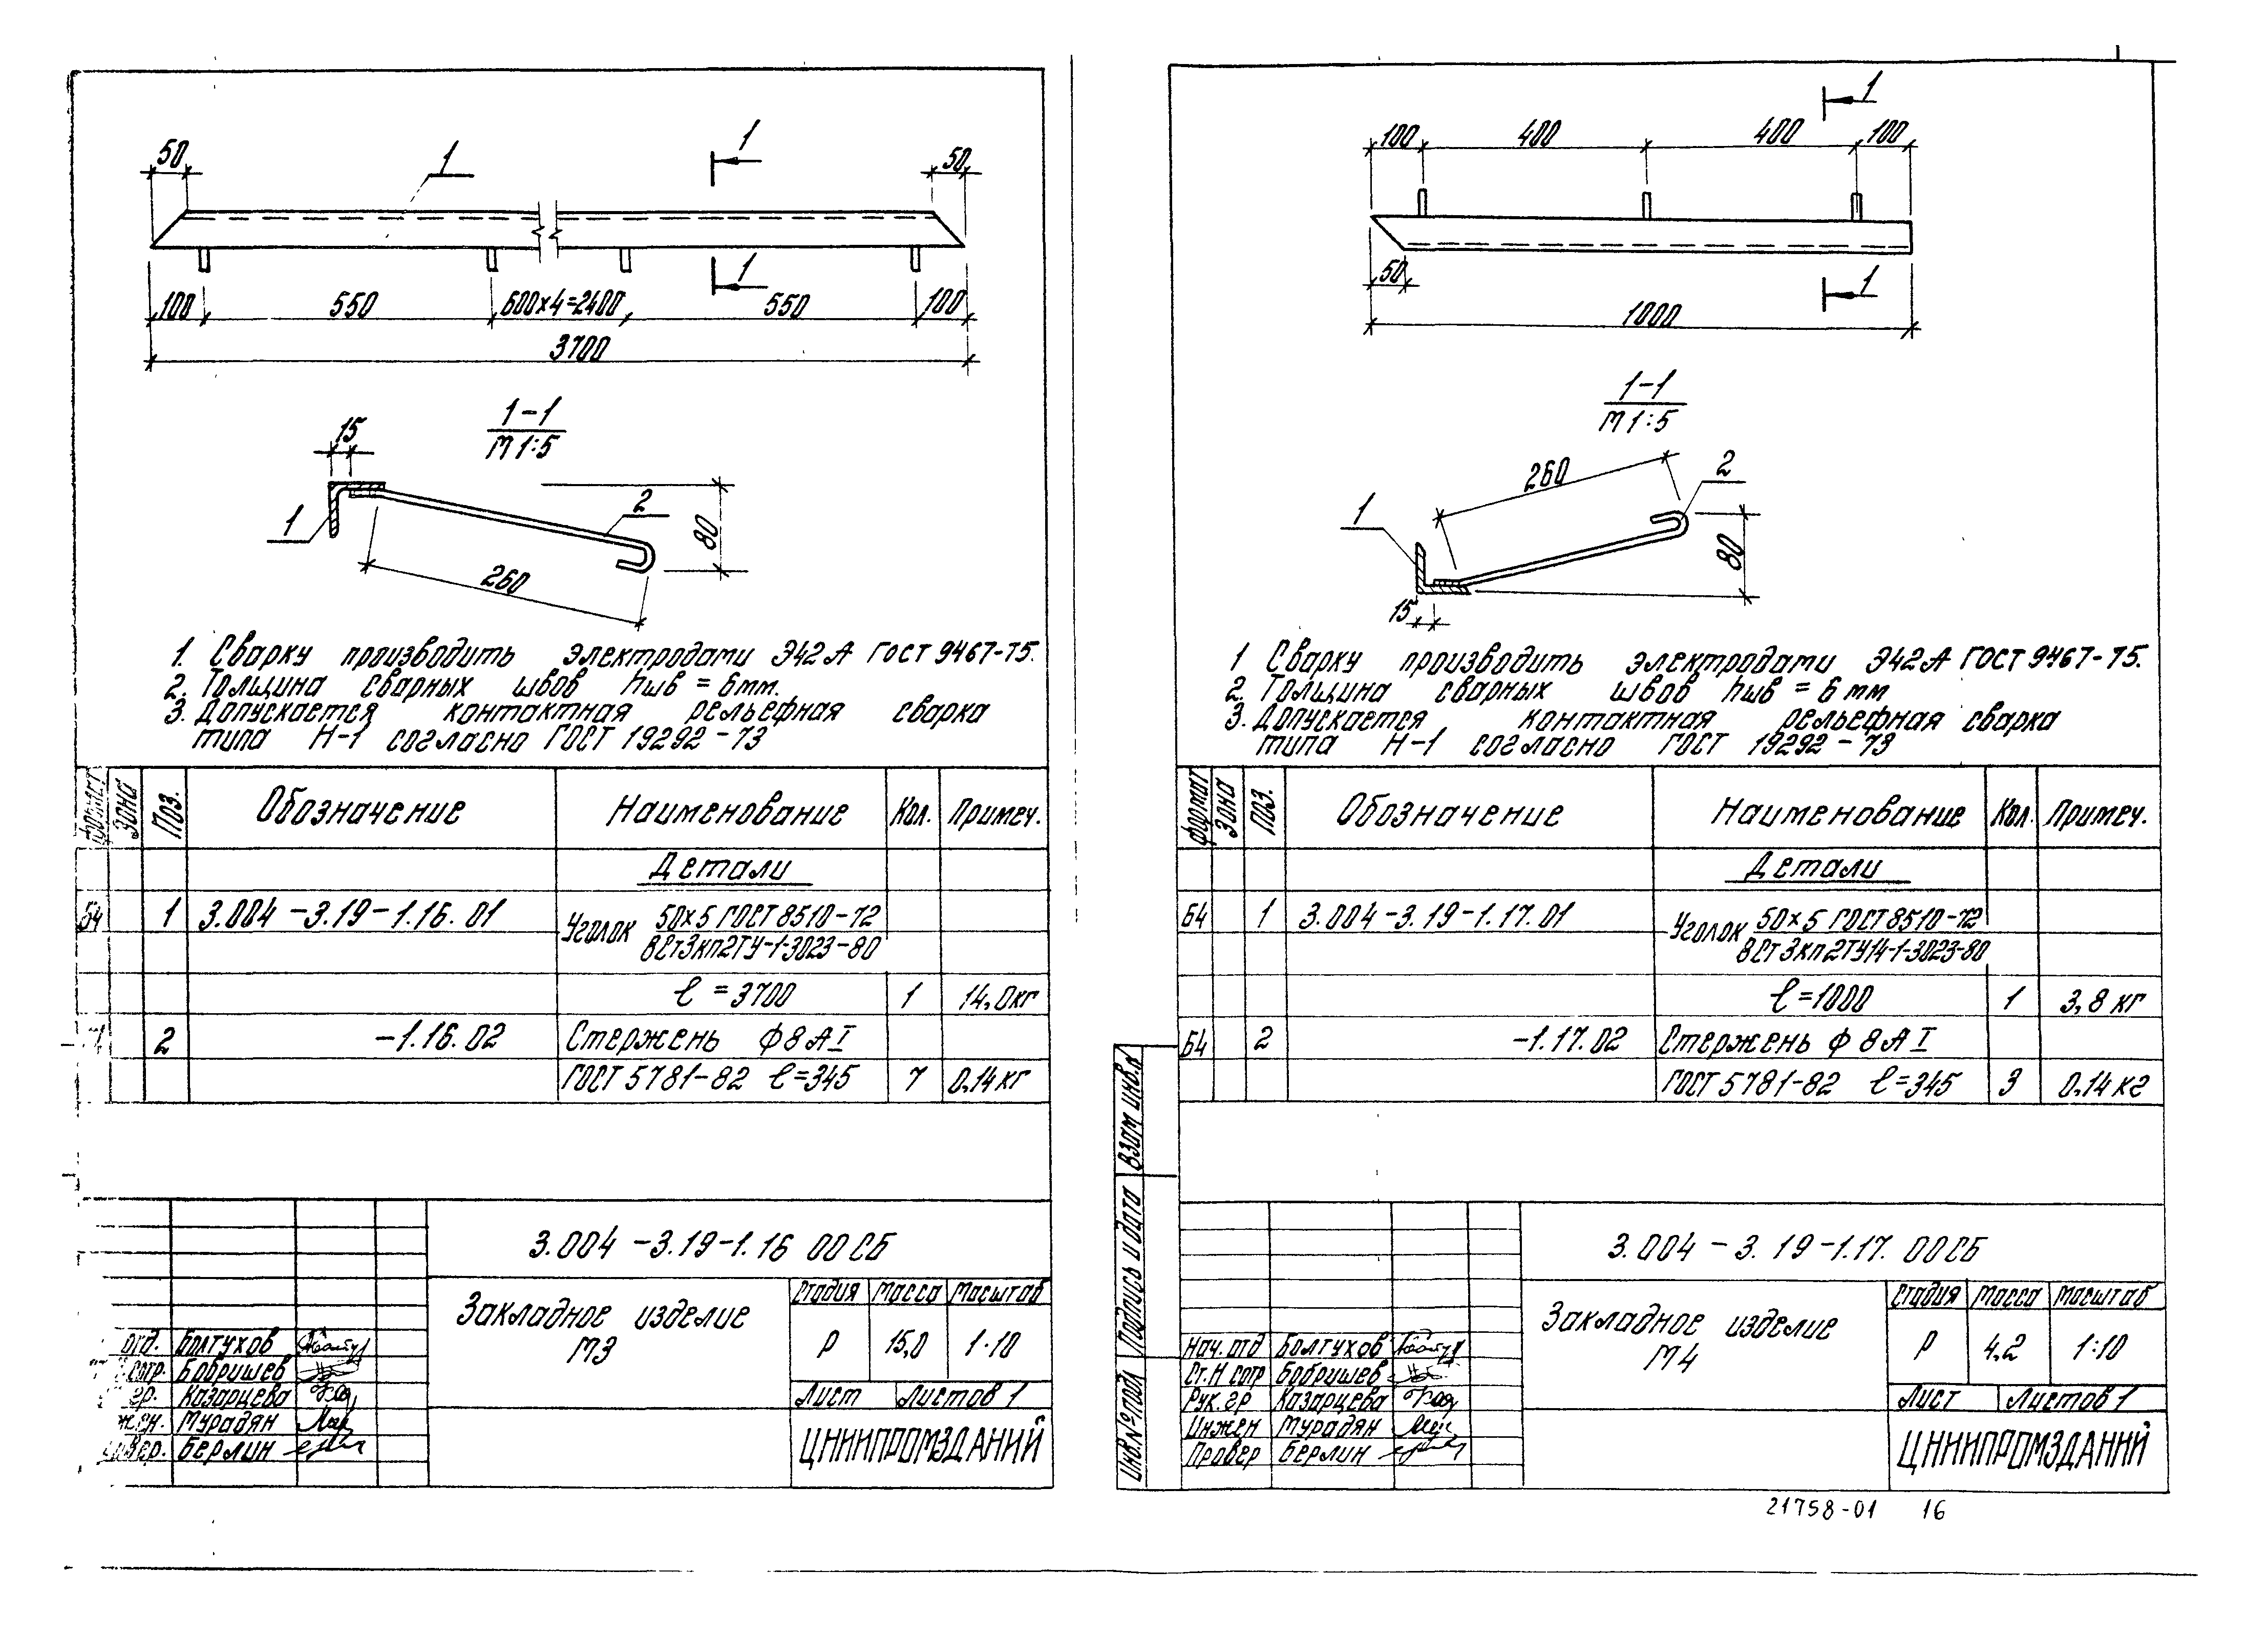 50
1
1
50
1
100
550
600×4=2400
550
100
3700
1-1
М 1:5
15
1
2
80
260
1. Сварку производить электродами Э42А ГОСТ 9467-75.
2. Толщина сварных швов hшв = 6мм.
3. Допускается контактная рельефная сварка
типа Н-1 согласно ГОСТ 19292-73
Формат Зона Поз. Обозначение Наименование Кол. Примеч.
Детали
Б4 1 3.004-3.19-1.16.01 Уголок 50×5 ГОСТ 8510-72
ВСт3кп2ТУ-1-3023-80
ℓ = 3700 1 14,0кг
2 -1.16.02 Стержень Ф8АI
ГОСТ 5781-82 ℓ=345 7 0,14кг
3.004-3.19-1.16 00СБ
Закладное изделие
М3
Стадия Масса Масштаб
Р 15,0 1:10
Лист Листов 1
ЦНИИПРОМЗДАНИЙ
отд. Болтухов
сотр. Бобришев
гр. Казарцева
жен. Мурадян
вер. Берлин
1
100
400
400
100
50
1
1000
1-1
М 1:5
260
2
1
80
15
1 Сварку производить электродами Э42А ГОСТ 9467-75.
2. Толщина сварных швов hшв = 6мм
3. Допускается контактная рельефная сварка
типа Н-1 согласно ГОСТ 19292-73
Формат Зона Поз. Обозначение Наименование Кол. Примеч.
Детали
Б4 1 3.004-3.19-1.17.01 Уголок 50×5 ГОСТ 8510-72
ВСт3кп2ТУ14-1-3023-80
ℓ=1000 1 3,8 кг
Б4 2 -1.17.02 Стержень Ф8АI
ГОСТ 5781-82 ℓ=345 3 0,14кг
Инв.№подл Подпись и дата Взам инв.№
3.004-3.19-1.17.00СБ
Закладное изделие
М4
Стадия Масса Масштаб
Р 4,2 1:10
Лист Листов 1
ЦНИИПРОМЗДАНИЙ
Нач.отд Болтухов
Ст.Н сотр Бобришев
Рук.гр Казарцева
Инжен Мурадян
Провер Берлин
21758-01 16